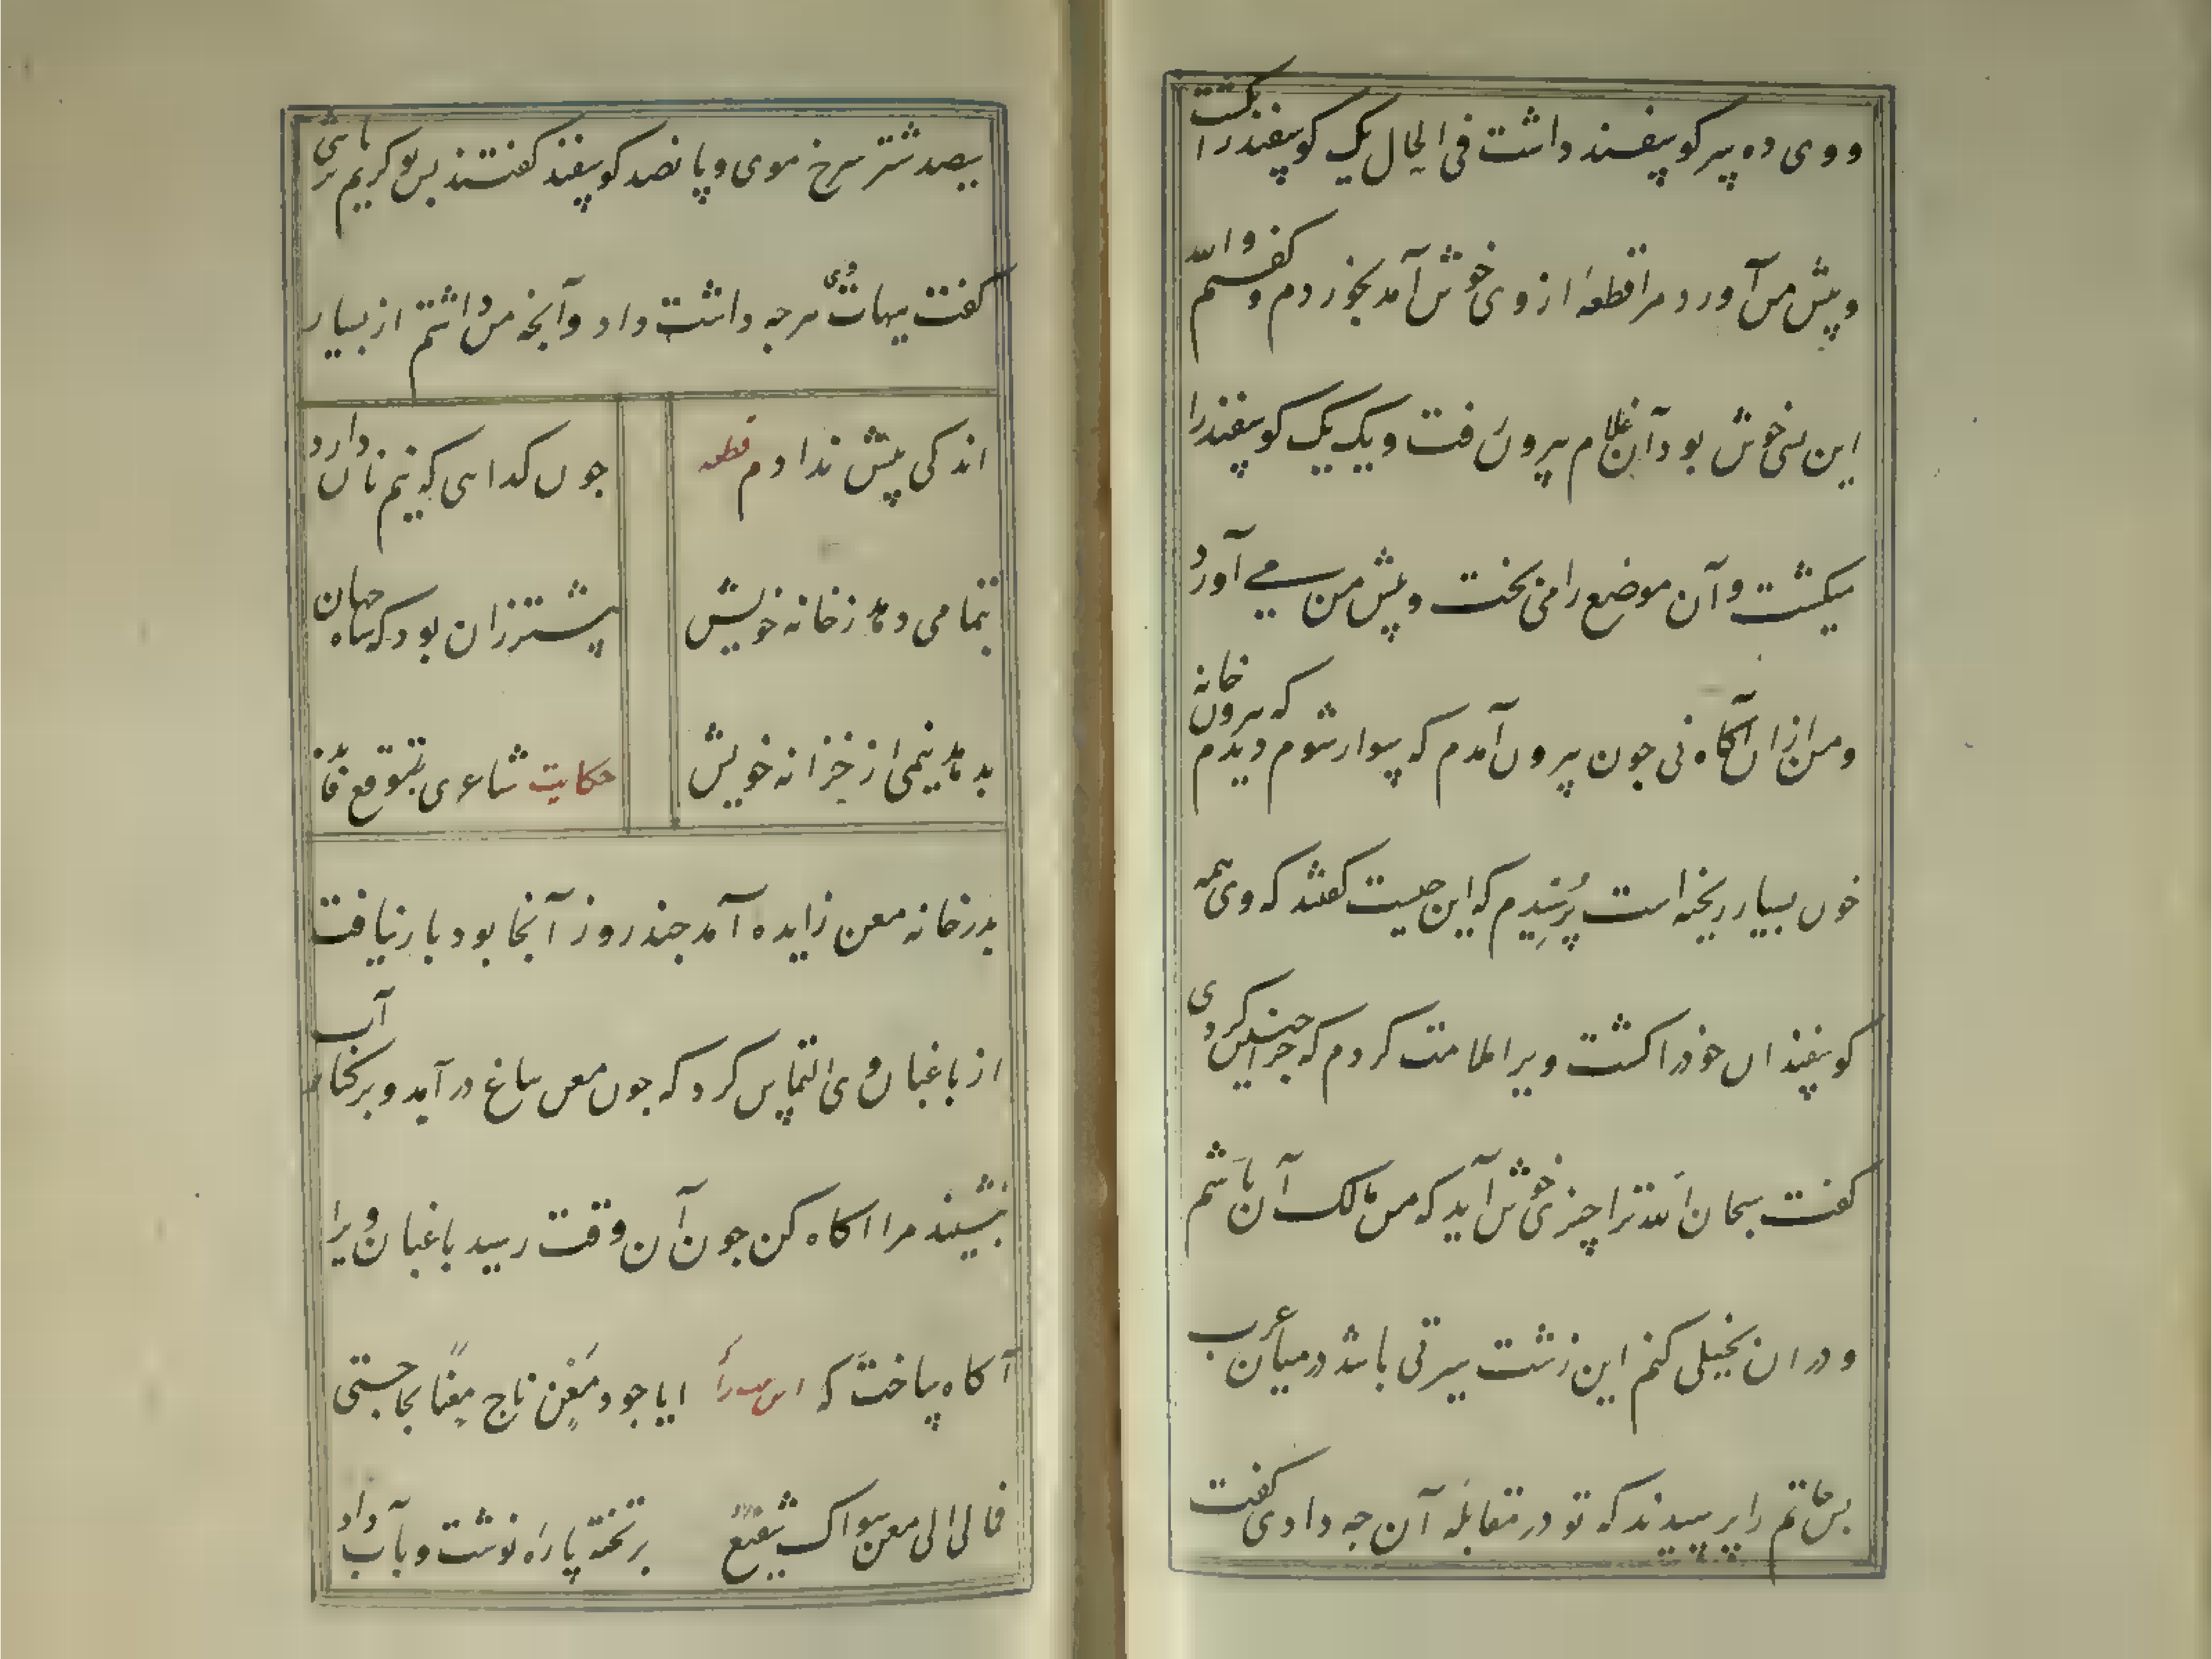 ووی ده پیر کوپیفسند داشت فی الحال یک کوپیفند را بکشت
و پیش من آورد مرا قطعهٔ از وی خوش آمد بخوردم و گفتم والله
این بسی خوش بود آن غلام بیرون رفت و یک یک کوپیفند را
میکشت و آن موضع را می پخت و پیش من می آورد
و من ازان آگاه نی چون بیرون آمدم که سوار شوم دیدم که بیرون خانه
خون بسیار ریخته است پرسیدم که این چیست گفتند که وی همه
کوپیفندان خود را کشت ویرا ملامت کردم که چرا چنین کردی
گفت سبحان الله ترا چیزی خوش آید که من مالک آن باشم
و در ان بخیلی کنم این زشت سیرتی باشد در میان عرب
پس حاتم را پرسیدند که تو در مقابله آن چه دادی گفت
سیصد شتر سرخ موی و پانصد کوپیفند گفتند پس تو کریم تر باشی
گفت هیهات وی هرچه داشت داد و آنچه من داشتم از بسیار
اندکی بیش ندادم قطعه چون گدایی که نیم نان دارد
بتمامی دهد ز خانه خویش بیشتر زان بود که شاه جهان
بدهد نیمی از خزانه خویش حکایت شاعری بتوقع فایده
بدر خانه معن زایده آمد چند روز آنجا بود بار نیافت
از باغبان وی التماس کرد که چون معن بباغ درآید و بر کنار آب
بنشیند مرا آگاه کن چون آن وقت رسید باغبان ویرا
آگاه ساخت که این بیت را ایا جود مَعْنٍ ناج مَعْنًا بحاجتی
فمالی الی معن سواک شفیع بر تخته پاره نوشت و بآب داد